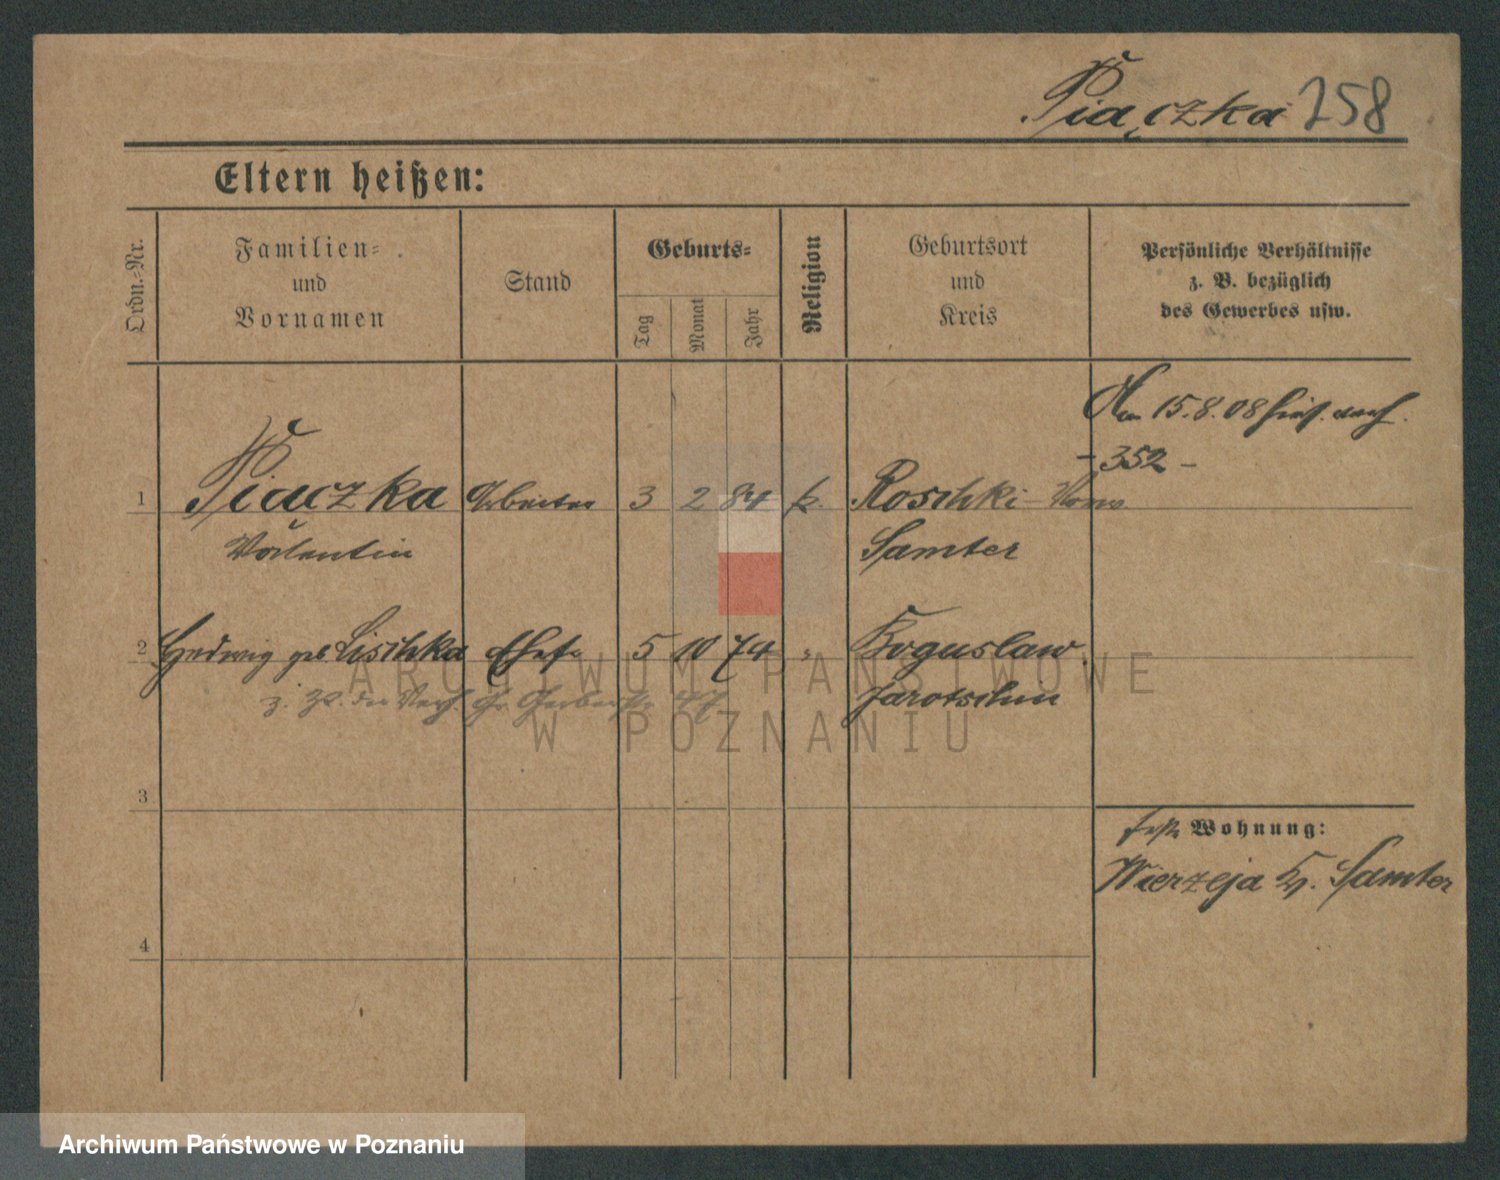 Piączka 258
Eltern heißen:
Ordn.-Nr.
Familien-
und
Vornamen
Stand
Geburts-
Tag
Monat
Jahr
Religion
Geburtsort
und
Kreis
Persönliche Verhältnisse
z. B. bezüglich
des Gewerbes usw.
15.8.08
- 352 -
1 Piaczka Arbeiter 3 2 84 k. Roschki
Valentin Samter
2 Hedwig geb Lischka Ehefr 5 10 74 " Boguslaw
z. Zt. Gr. Gerberstr. 47 Jarotschin
3
Wohnung:
Wierzeja Kr. Samter
4
ARCHIWUM PAŃSTWOWE
W POZNANIU
Archiwum Państwowe w Poznaniu